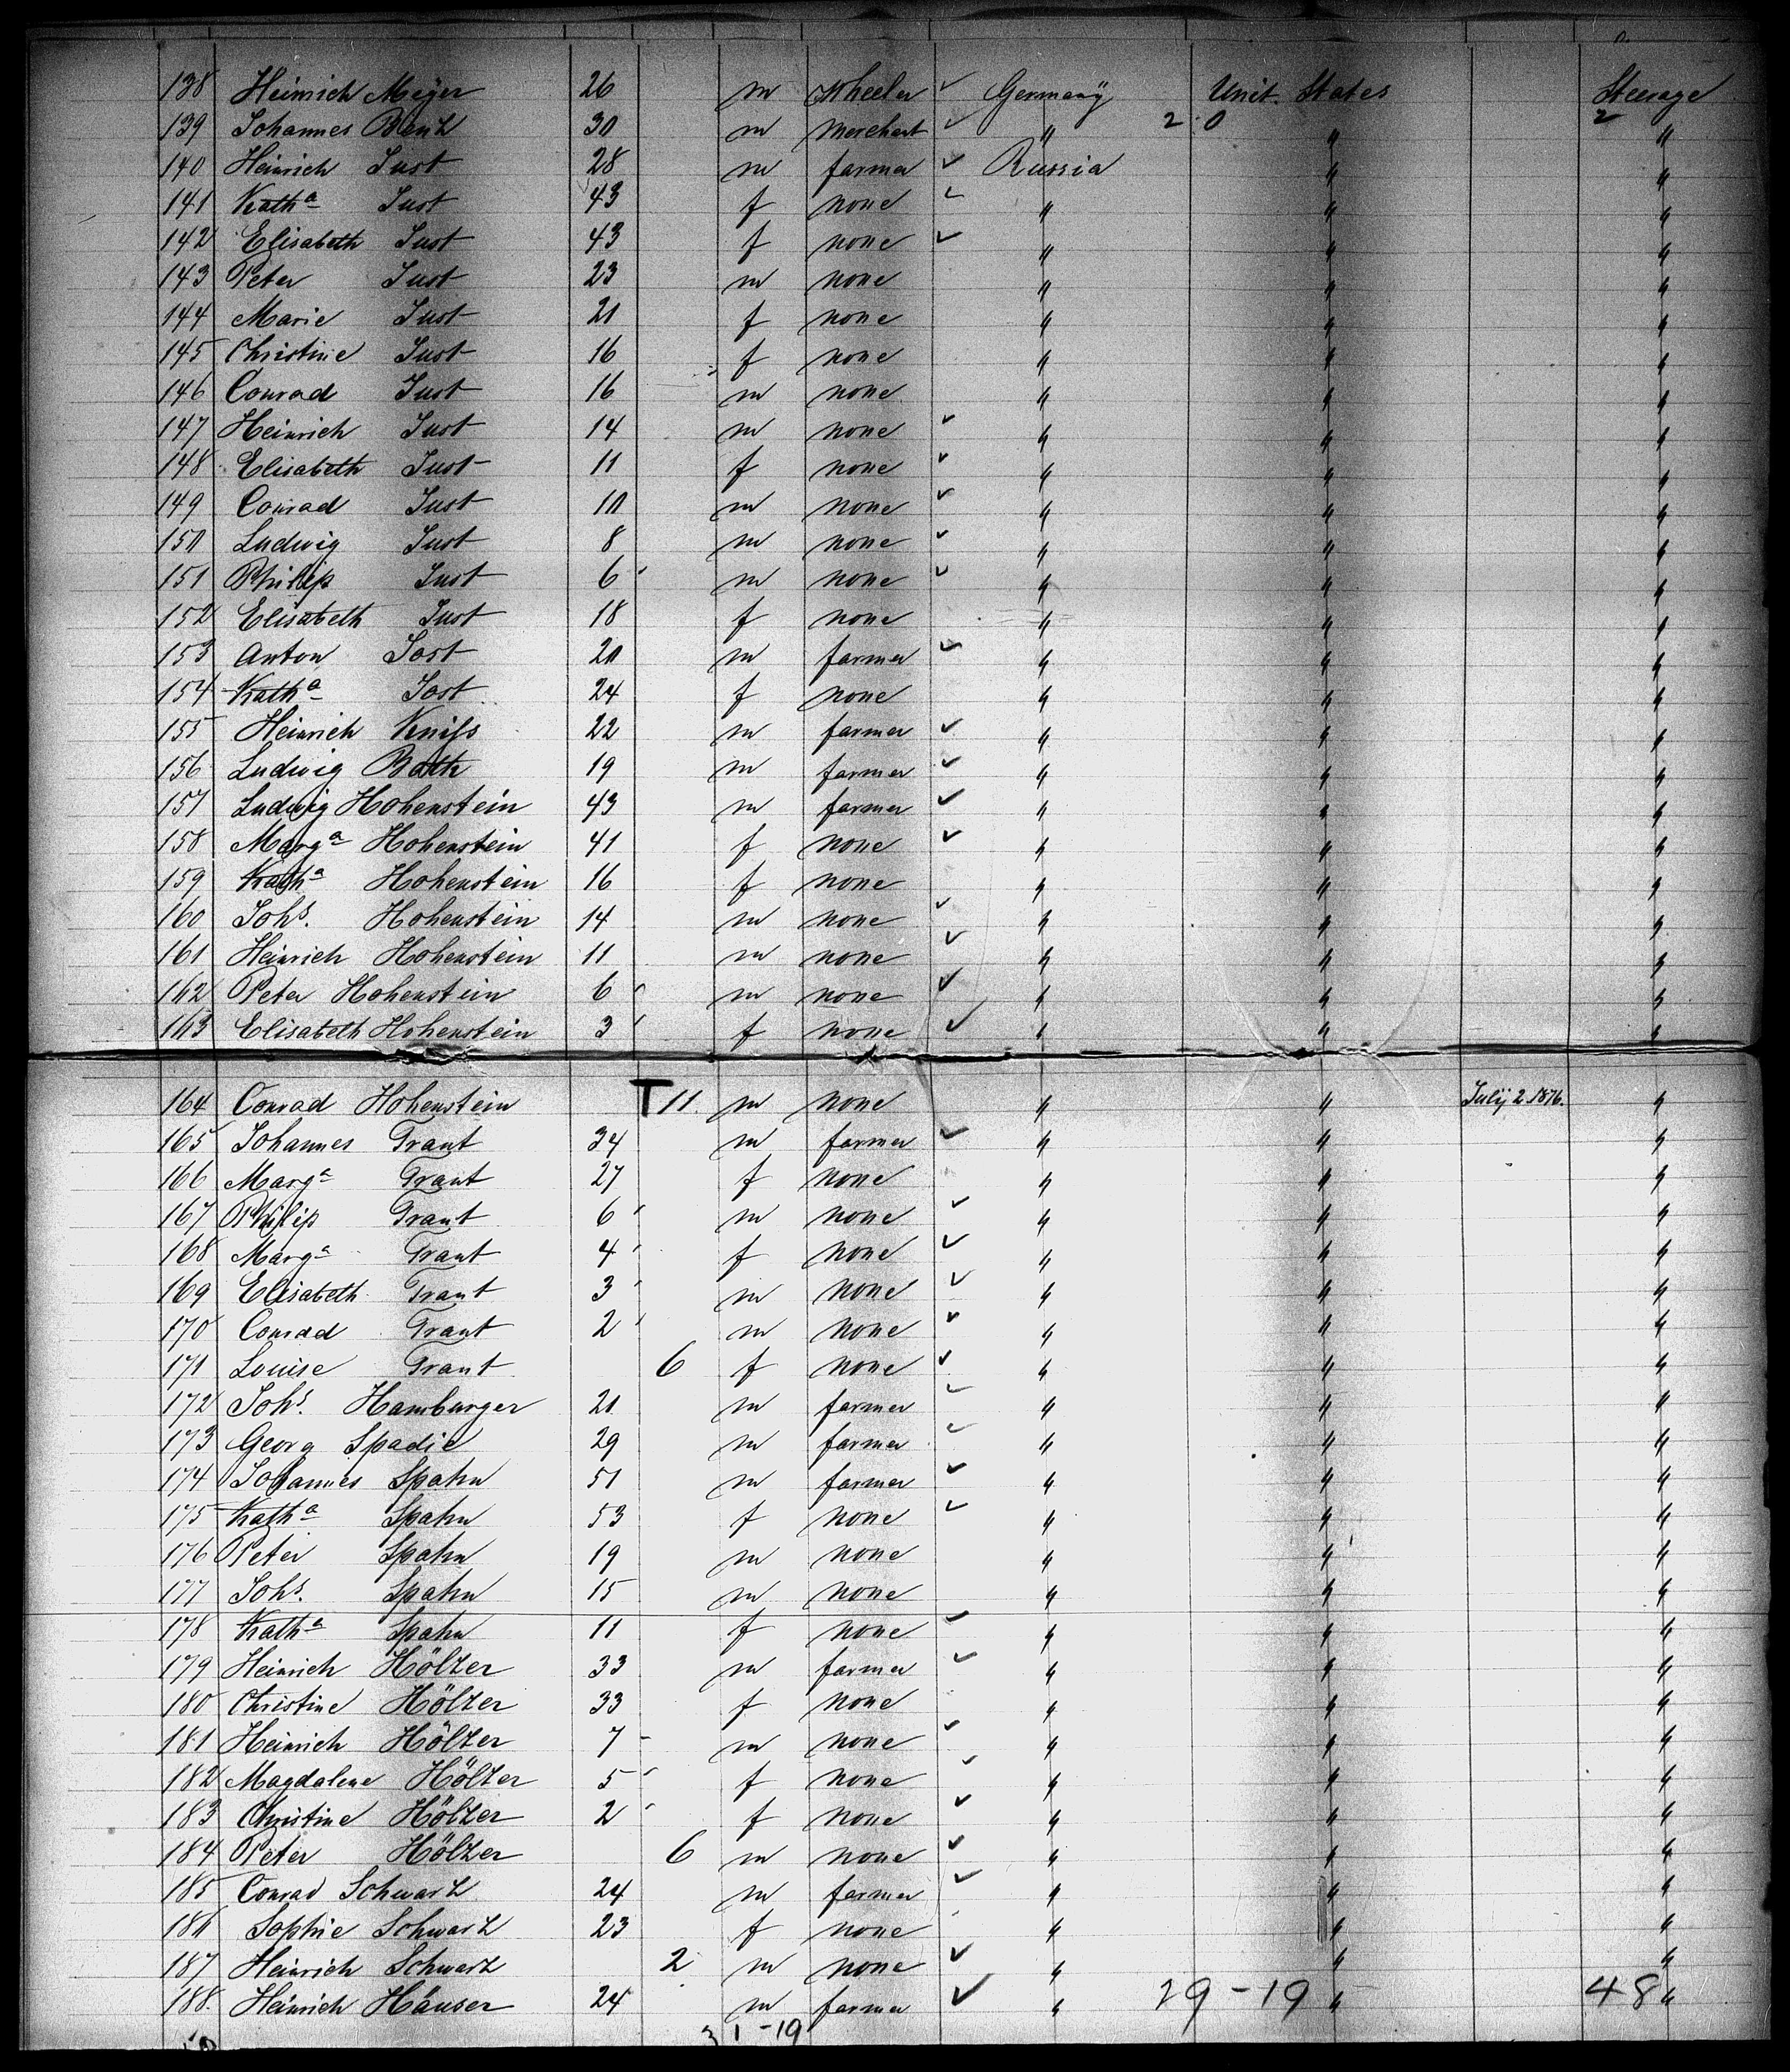 138 Heinrich Meÿer 26 m Wheeler ✓ Germanÿ Unit. States Steerage
139 Johannes Benz 30 m merchant ✓ " 2 0 " 2 "
140 Heinrich Just 28 m farmer ✓ Russia " "
141 Kathª Just 43 f none ✓ " " "
142 Elisabeth Just 43 f none ✓ " " "
143 Peter Just 23 m none " " "
144 Marie Just 20 f none " " "
145 Christine Just 16 f none " " "
146 Conrad Just 16 m none " " "
147 Heinrich Just 14 m none ✓ " " "
148 Elisabeth Just 11 f none ✓ " " "
149 Conrad Just 10 m none ✓ " " "
150 Ludwig Just 8 m none ✓ " " "
151 Philip Just 6 m none ✓ " " "
152 Elisabeth Just 18 f none " " "
153 Anton Jost 20 m farmer ✓ " " "
154 Kathª Jost 24 f none " " "
155 Heinrich Kniss 22 m farmer ✓ " " "
156 Ludwig Bath 19 m farmer ✓ " " "
157 Ludwig Hohenstein 43 m farmer ✓ " " "
158 Margª Hohenstein 41 f none ✓ " " "
159 Kathª Hohenstein 16 f none " " "
160 Johs. Hohenstein 14 m none ✓ " " "
161 Heinrich Hohenstein 11 m none ✓ " " "
162 Peter Hohenstein 6 m none ✓ " " "
163 Elisabeth Hohenstein 3 f none ✓ " " "
164 Conrad Hohenstein T 11. m none " " Julÿ 2. 1876. "
165 Johannes Traut 34 m farmer ✓ " " "
166 Margª Traut 27 f none " " "
167 Philip Traut 6 m none ✓ " " "
168 Margª Traut 4 f none ✓ " " "
169 Elisabeth Traut 3 m none ✓ " " "
170 Conrad Traut 2 m none ✓ " " "
171 Louise Traut 6 f none ✓ " " "
172 Johs. Hamburger 20 m farmer ✓ " " "
173 Georg Spadie 29 m farmer ✓ " " "
174 Johannes Spahn 50 m farmer ✓ " " "
175 Kathª Spahn 53 f none ✓ " " "
176 Peter Spahn 19 m none " " "
177 Johs. Spahn 15 m none " " "
178 Kathª Spahn 11 f none ✓ " " "
179 Heinrich Hölzer 33 m farmer ✓ " " "
180 Christine Hölzer 33 f none " " "
181 Heinrich Hölzer 7 m none ✓ " " "
182 Magdalene Hölzer 5 f none ✓ " " "
183 Christine Hölzer 2 f none ✓ " " "
184 Peter Hölzer 6 m none ✓ " " "
185 Conrad Schwarz 24 m farmer ✓ " " "
186 Sophie Schwarz 23 f none " " "
187 Heinrich Schwarz 2 m none ✓ " " "
188. Heinrich Häuser 24 m farmer ✓ " 29 - 19 " 48 "
31 - 19